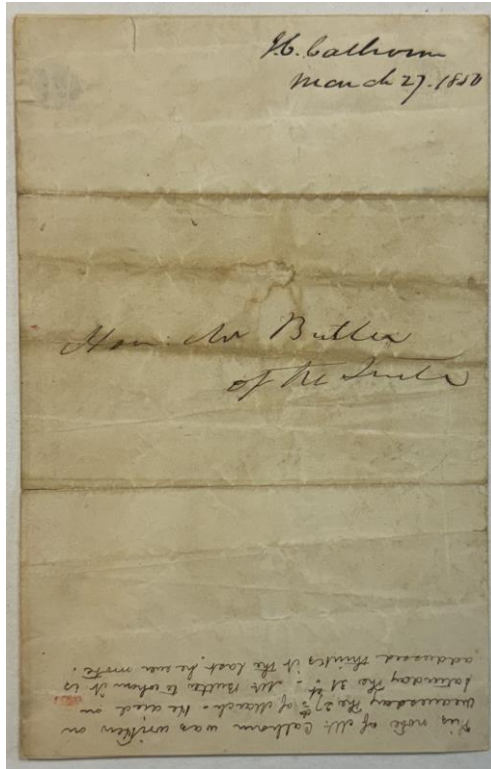 J. C. Calhoun
March 27. 1850
Hon: Mr Butler
of the Senate
This note of Mr. Calhoun was written on
Wednesday the 27th of March. He died on
Saturday the 31st. Mr Butler to whom it is
addressed thinks it the last he ever wrote.